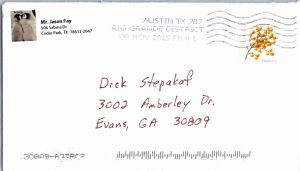 Mr. Jason Fay
Cedar Park, TX 78613-2047
AUSTIN TX 787
RIO GRANDE DISTRICT
09 NOV 2010 PM 4 L
Dick Stepakof
3002 Amberley Dr.
Evans, GA 30809